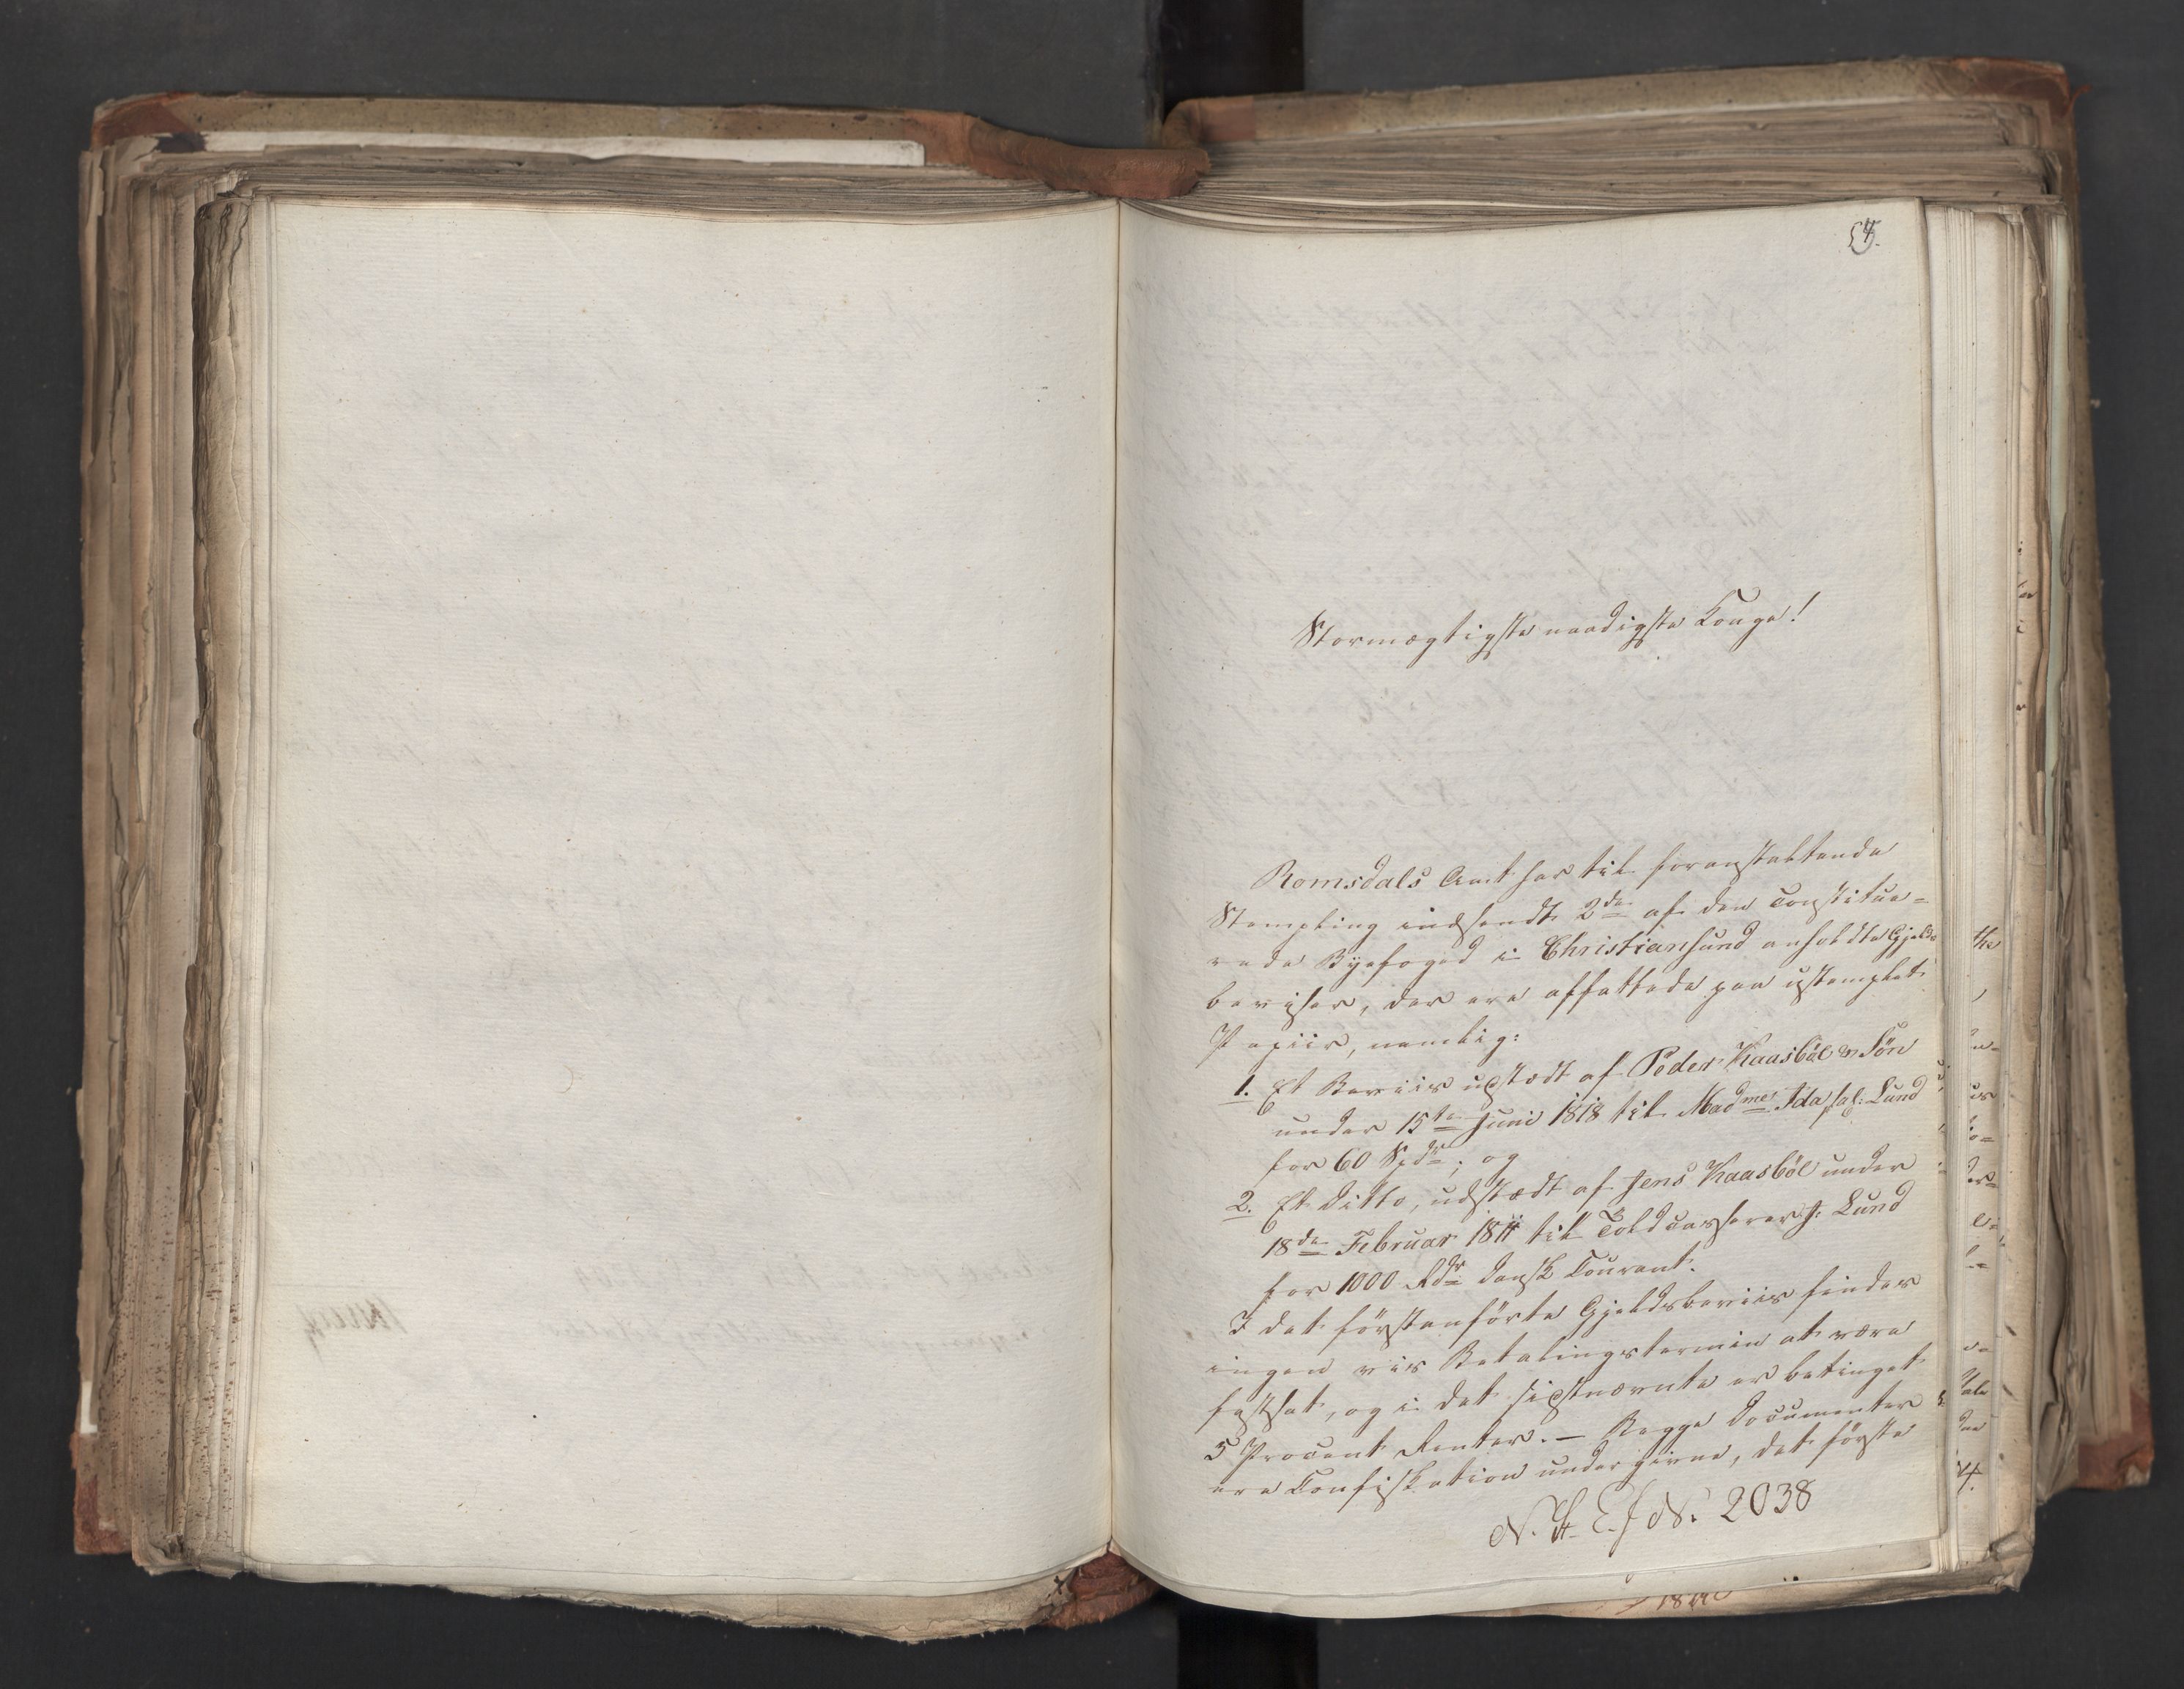 Stormægtigste naadigste Konge!
Romsdals Amt har til foranstaltende
Stempling indsendt 2de af den constitue=
rede Byefoged i Christiansund anholdte Gjelds
beviser, der ere affattede paa ustemplet
Papiir, nemlig:
1. Et Beviis udstædt af Peder Kaasböl & Sön
under 15te Juni 1818 til Madme Ida sal: Lund
for 60 Spdr; og
2. Et ditto, udstædt af Jens Kaasböl under
18de Februar 1811 til Toldcasserer J: Lund
for 1000 Rdr dansk Courant.
I det förstanförte Gjeldsbeviis findes
ingen vis Betalingstermin at være
fastsat, og i det sidstnævnte er betinget
5 Procent Renter. — Begge Documenter
ere Confiskation undergivne, det förste
N. 2038